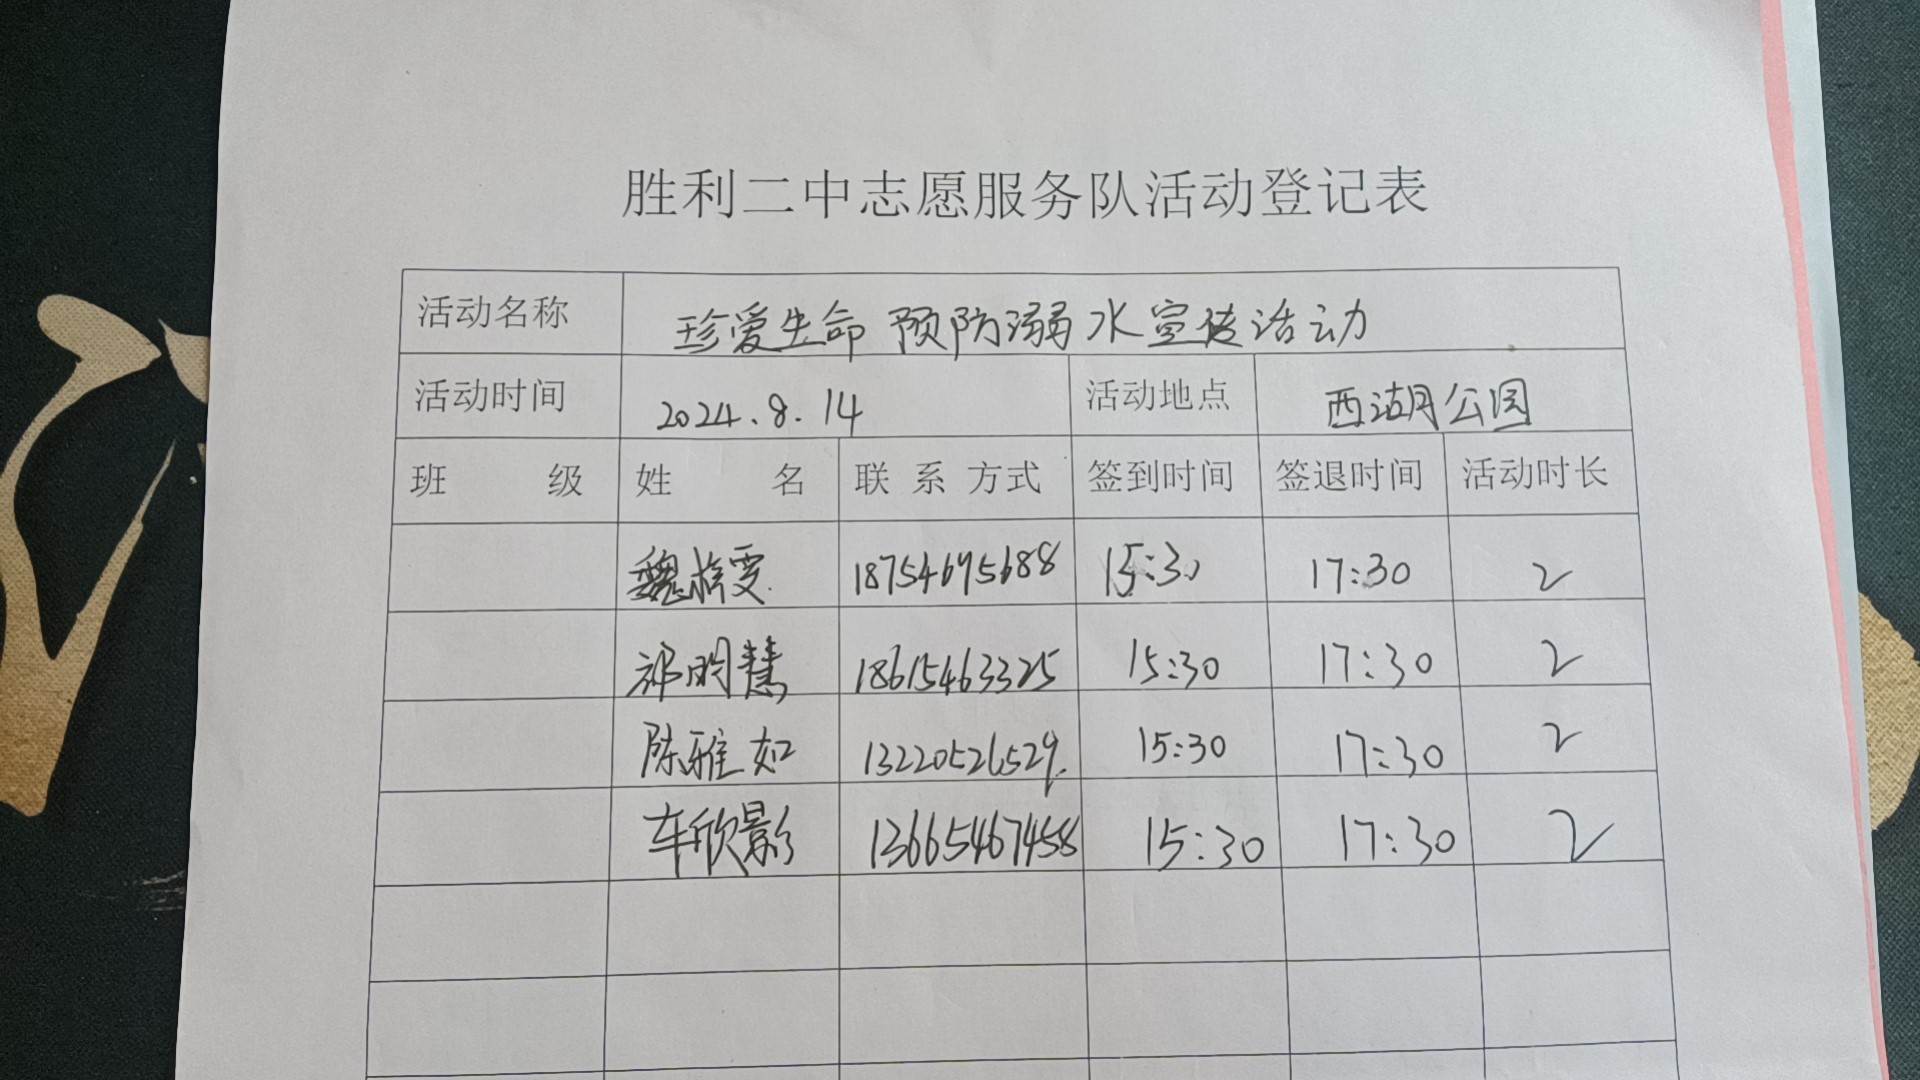 胜利二中志愿服务队活动登记表
活动名称 珍爱生命 预防溺水宣传活动
活动时间 2024.8.14 活动地点 西湖公园
班 级 姓 名 联系方式 签到时间 签退时间 活动时长
魏 雯 18754695688 15:30 17:30 2
祁明慧 18615463325 15:30 17:30 2
陈雅如 13220526529 15:30 17:30 2
车欣影 13665467458 15:30 17:30 2